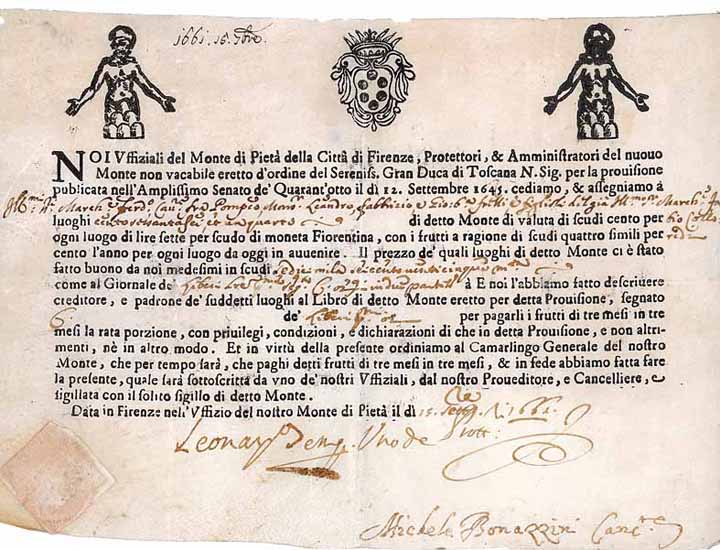 1661. 15.
NOI Vffiziali del Monte di Pietà della Città di Firenze, Protettori, & Amministratori del nuouo
Monte non vacabile eretto d'ordine del Sereniss. Gran Duca di Toscana N. Sig. per la prouisione
publicata nell'Amplissimo Senato de' Quarant'otto il dì 12. Settembre 1645. cediamo, & assegniamo à
Pompeo Leandro Fabbrizio e
luoghi di detto Monte di valuta di scudi cento per
ogni luogo di lire sette per scudo di moneta Fiorentina, con i frutti a ragione di scudi quattro simili per
cento l'anno per ogni luogo da oggi in auuenire. Il prezzo de' quali luoghi di detto Monte ci è stato
fatto buono da noi medesimi in scudi
come al Giornale de à E noi l'abbiamo fatto descriuere
creditore, e padrone de' suddetti luoghi al Libro di detto Monte eretto per detta Prouisione, segnato
6. de' per pagarli i frutti di tre mesi in tre
mesi la rata porzione, con priuilegi, condizioni, e dichiarazioni di che in detta Prouisione, e non altri-
menti, nè in altro modo. Et in virtù della presente ordiniamo al Camarlingo Generale del nostro
Monte, che per tempo sarà, che paghi detti frutti di tre mesi in tre mesi, & in fede abbiamo fatta fare
la presente, quale sarà sottoscritta da vno de' nostri Vffiziali, dal nostro Proueditore, e Cancelliere, e
sigillata con il solito sigillo di detto Monte.
Data in Firenze nell'Vffizio del nostro Monte di Pietà il dì 15. 1661.
Vno de
Michele Bonazzini Canc.